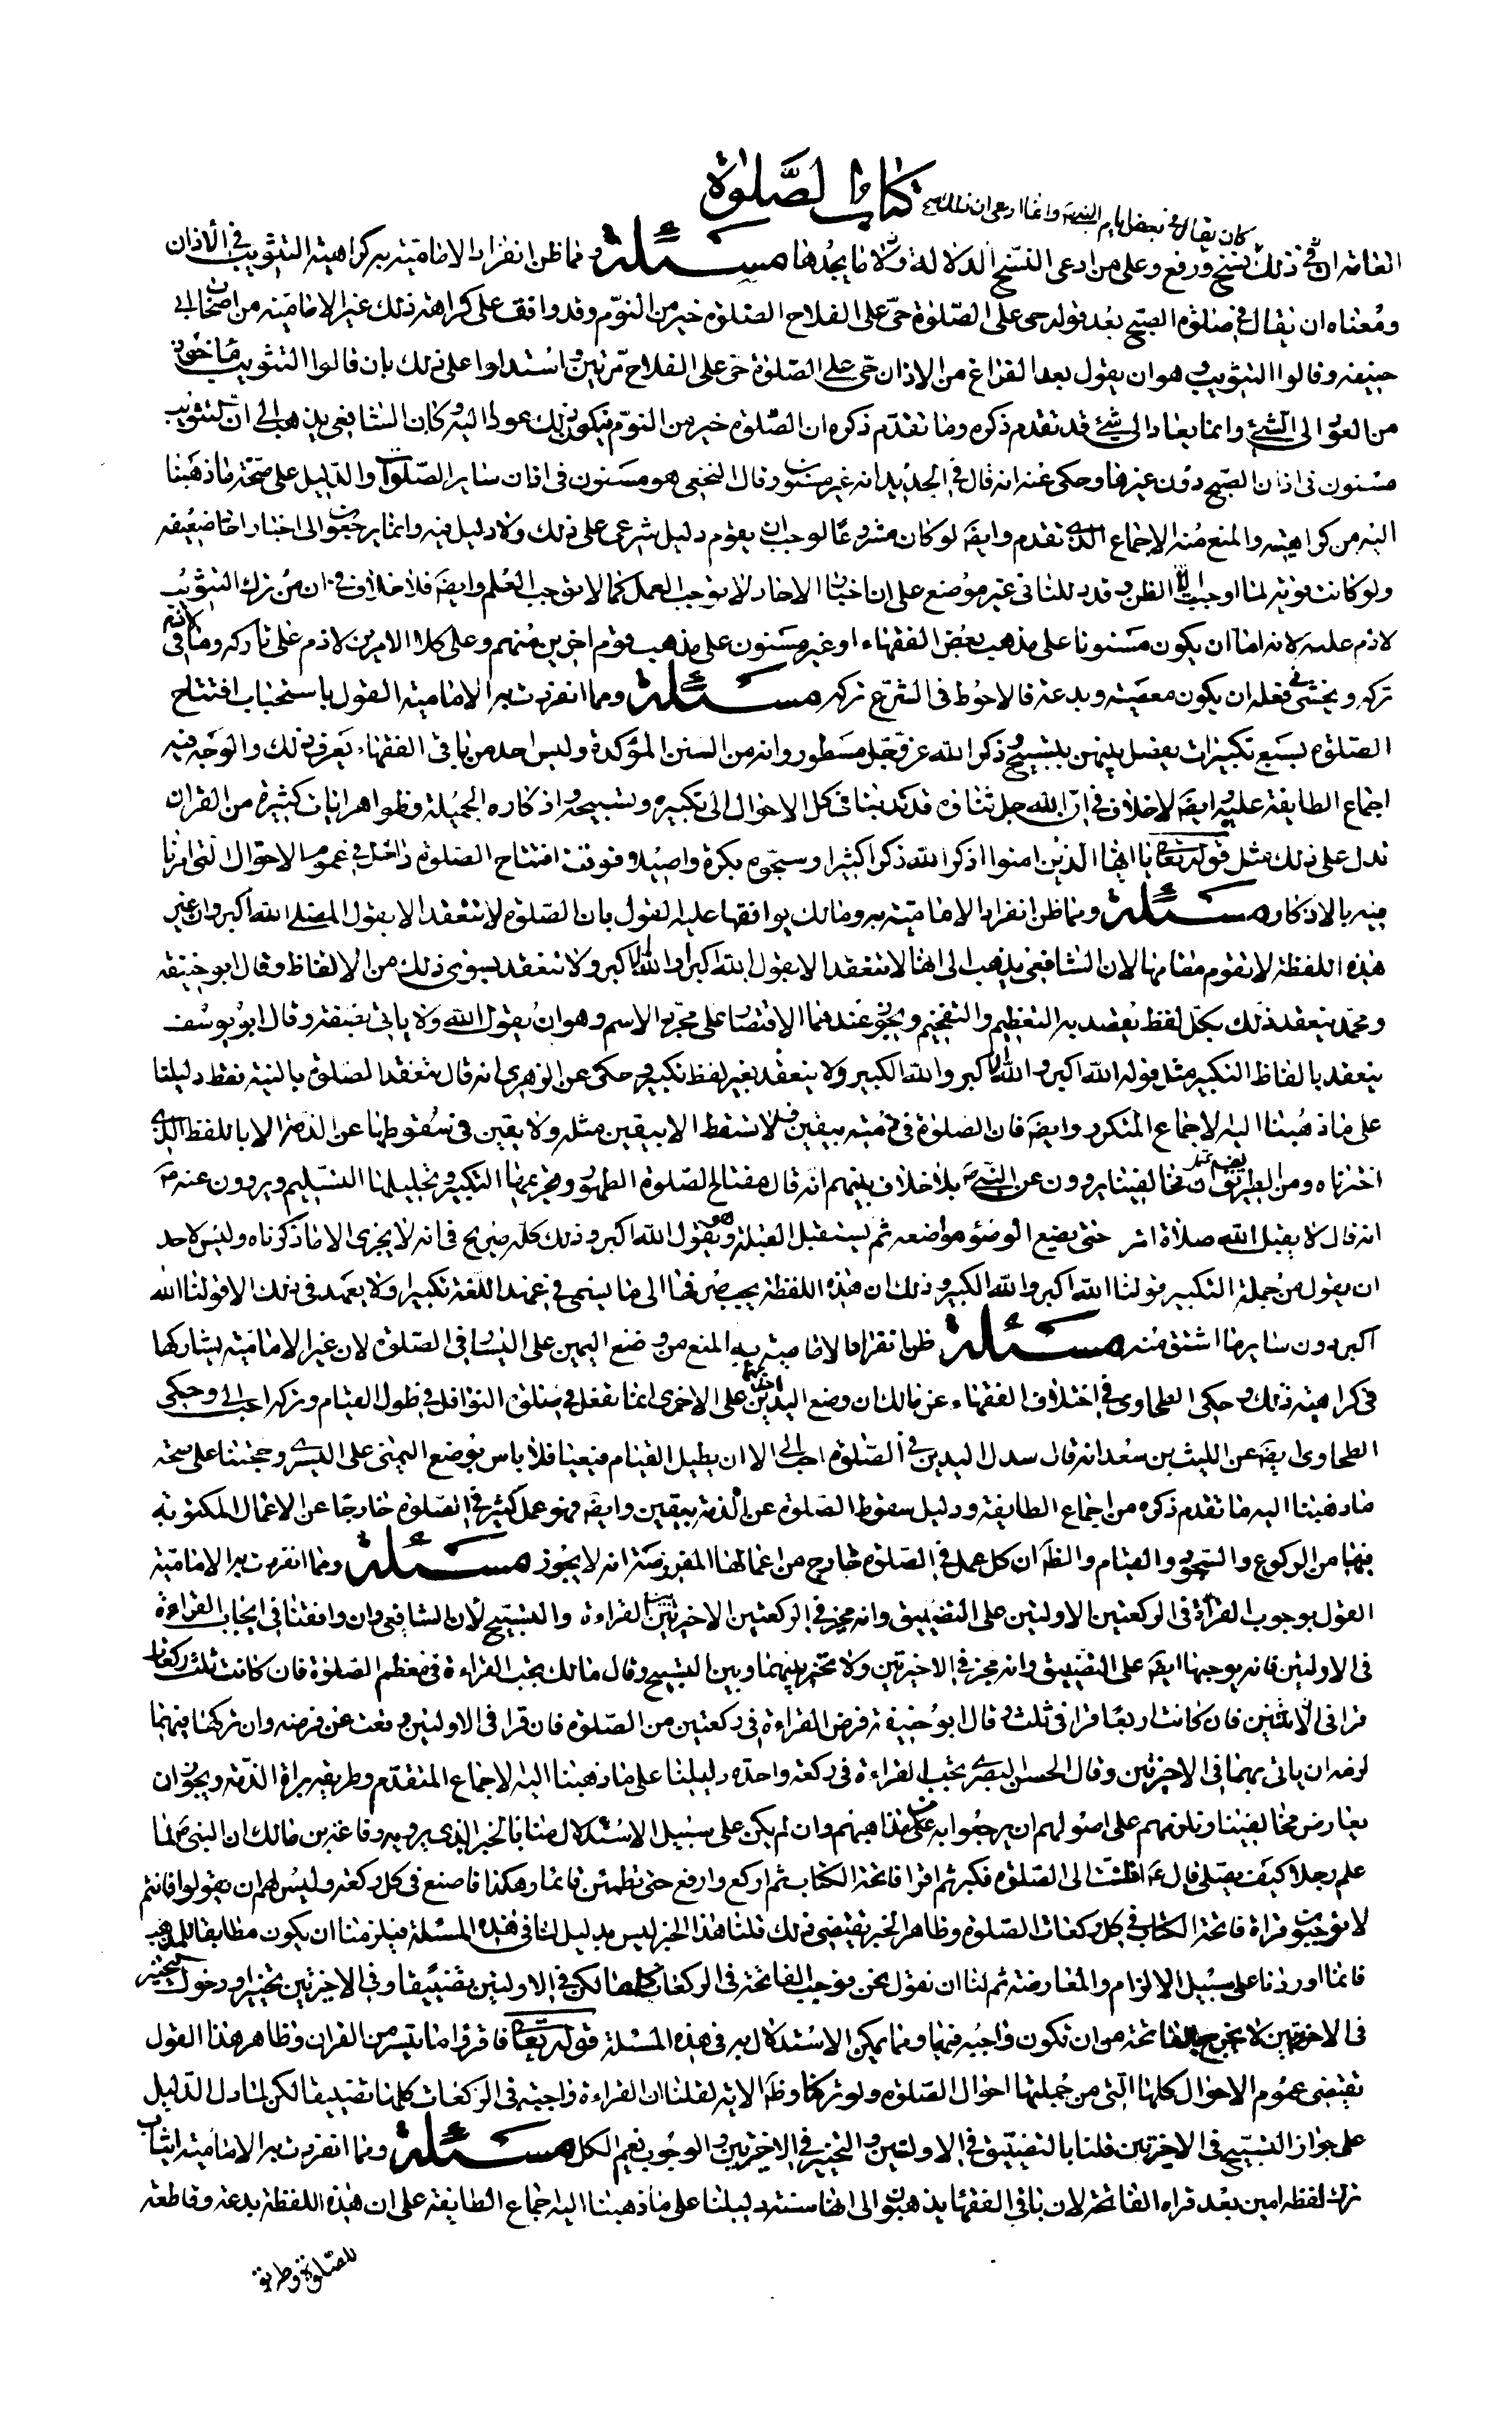 كتاب الصلوة
كان يقال في بعض ايام النبي ص وانما ادعى ان ذلك نسخ
العامة ان في ذلك نسخ ورفع وعلى من ادعى النسخ الدلالة ولا ما يجدها مسئلة ومما ظن انفراد الامامية به كراهية التثويب في الأذان
ومعناه ان يقال في صلوة الصبح بعد قوله حى على الصلوة حى على الفلاح الصلوة خير من النوم وقد وافق على كراهة ذلك غير الامامية من اصحاب ابى
حنيفه وقالوا التثويب هو ان يقول بعد الفراغ من الاذان حى على الصلوة حى على الفلاح مرتين واستدلوا على ذلك بان قالوا التثويب مأخوذ
من العود الى الشئ وانما يعاد الى شئ قد تقدم ذكره وما تقدم ذكره ان الصلوة خير من النوم فيكون ذلك عودا اليه وكان الشافعى يذهب الى ان التثويب
مسنون فى اذان الصبح دون غيرها وحكى عنه انه قال فى الجديد انه غير مسنون وقال النخعى هو مسنون فى اذان ساير الصلوات والدليل على صحة ما ذهبنا
اليه من كراهيته والمنع منه الاجماع الذى تقدم وايضَ لو كان مشروعًا لوجب ان يقوم دليل شرعى على ذلك ولا دليل فيه وانما يرجعون الى اخبار احاد ضعيفه
ولو كانت قويه لما اوجبت الا الظن وقد دللنا فى غير موضع على ان اخبار الاحاد لا توجب العمل كما لا توجب العلم وايضَ فلا خلاف فى ان من ترك التثويب
لا ذم عليه لانه اما ان يكون مسنونا على مذهب بعض الفقهاء او غير مسنون على مذهب قوم اخرين منهم وعلى كلا الامرين لا ذم على تاركه وما لا ذم فى
تركه ويخشى فى فعله ان يكون معصيته وبدعة فالاحوط فى الشرع تركه مسئلة ومما انفردت به الامامية القول باستحباب افتتاح
الصلوة بسبع تكبيرات يفصل بينهن بتسبيح وذكر الله عز وجل مسطور وانه من السنن المؤكدة وليس احد من باقى الفقهاء يعرف ذلك والوجه فيه
اجماع الطايفة عليه وايضَ لا خلاف فى ان الله جل ثناؤه قد ندبنا فى كل الاحوال الى تكبيره وتسبيحه واذكاره الجميلة وظواهر ايات كثيرة من القران
تدل على ذلك مثل قوله تعا يا ايها الذين امنوا اذكروا الله ذكرا كثيرا وسبحوه بكرة واصيلا ووقت افتتاح الصلوة داخل فى عموم الاحوال التى امرنا
فيه بالاذكار مسئلة ومما ظن انفراد الامامية به ومالك يوافقها عليه القول بان الصلوة لا تنعقد الا بقول المصلى الله اكبر وان غير
هذه اللفظة لا تقوم مقامها لان الشافعى يذهب الى انها لا تنعقد الا بقول الله اكبر او الله الاكبر ولا تنعقد بسوى ذلك من الالفاظ وقال ابو حنيفه
ومحمد ينعقد ذلك بكل لفظ يقصد به التعظيم والتفخيم ويجوز عندهما الاقتصار على مجرد الاسم وهو ان يقول الله ولا ياتى بصفة وقال ابو يوسف
ينعقد بالفاظ التكبير مثل قوله الله اكبر والله الاكبر والله الكبير ولا ينعقد بغير لفظ تكبير وحكى عن الزهرى انه قال تنعقد الصلوة بالنية فقط دليلنا
على ما ذهبنا اليه الاجماع المتكرر وايضَ فان الصلوة فى ذمته بيقين فلا تسقط الا بيقين مثله ولا يقين فى سقوطها عن الذمة الا باللفظ الذى
اخترناه ومن الطريق ان مخالفينا يروون عن النبى ص بلا خلاف بينهم انه قال مفتاح الصلوة الطهور وتحريمها التكبير وتحليلها التسليم ويروون عنه ص
انه قال لا يقبل الله صلاة امر حتى يضع الوضوء مواضعه ثم يستقبل القبلة ويقول هو الله اكبر وذلك كله صريح فى انه لا يجزى الا ما ذكرناه وليس لاحد
ان يقول من جملة التكبير قولنا الله اكبر والله الكبير وذلك ان هذه اللفظة يجب صرفها الى ما يسمى فى عهد اللغة تكبيرا ولا يعهد فى ذلك الا قولنا الله
اكبر دون ساير ما اشتق منه مسئلة ظن انفراد الامامية به المنع من وضع اليمين على اليسار فى الصلوة لان غير الامامية يشاركها
فى كراهية ذلك وحكى الطحاوى فى اختلاف الفقهاء عن مالك ان وضع اليدين احديهما على الاخرى انما تفعل فى صلوة النوافل فى طول القيام وتركه احب الى وحكى
الطحاوى ايضَ عن الليث بن سعد انه قال سدل اليدين فى الصلوة احب الى الا ان يطيل القيام فيعيا فلا باس بوضع اليمنى على اليسرى وحجتنا على صحة
ما ذهبنا اليه ما تقدم ذكره من اجماع الطايفة ودليل سقوط الصلوة عن الذمة بيقين وايضَ فهو عمل كثير فى الصلوة خارجا عن الاعمال المكتوبة
فيها من الركوع والسجود والقيام والظَ ان كل عمل فى الصلوة خارج من اعمالها المفروضة انه لا يجوز مسئلة ومما انفردت به الامامية
القول بوجوب القراءة فى الركعتين الاوليين على التضييق وانه مخير فى الركعتين الاخيرتين بين القراءة والتسبيح لأن الشافعى وان وافقنا فى ايجاب القراءة
فى الاوليين فانه يوجبها ايضَ على التضييق وانه مخير فى الاخيرتين ولا مخير بينهما وبين التسبيح وقال مالك يجب القراءة فى معظم الصلوة فان كانت ثلث ركعات
قرا فى الاثنين فان كانت اربعًا قرا فى ثلث وقال ابو حنيفة فرض القراءة فى ركعتين من الصلوة فان قرا فى الاوليين وقعت عن فرضه وان تركها فيهما
لزمه ان ياتى بهما فى الاخيرتين وقال الحسن البصرى تجب القراءة فى ركعة واحدة دليلنا على ما ذهبنا اليه الاجماع المتقدم وطريقه براة الذمة ويجوز ان
يعارض مخالفينا ونلزمهم على اصولهم ان يرجعوا به عن مذاهبهم وان لم يكن على سبيل الاستدلال منا بالخبر الذى يرويه رفاعة بن مالك ان النبى ص لما
علم رجلا كيف يصلى قال عَ اذا قمت الى الصلوة فكبر ثم اقرا فاتحة الكتاب ثم اركع وارفع حتى تطمئن قائما وهكذا فاصنع فى كل ركعة وليس لهم ان يقولوا فانتم
لا توجبون قراة فاتحة الكتاب فى كل ركعات الصلوة وظاهر الخبر يقتضى ذلك قلنا هذا الخبر ليس بدليل لنا فى هذه المسئلة فيلزمنا ان يكون مطابقا للمذهب
فانما اوردنا على سبيل الالزام والمعارضة ثم لنا ان نقول نحن نوجب الفاتحة فى الركعات كلها لكن فى الاوليين تضييقا وفى الاخيرتين تخييرا ودخول التخيير
فى الاخرتين لا يخرج الفاتحة من ان تكون واجبة فيها ومما يمكن الاستدلال به فى هذه المسئلة قوله تعا فاقرؤا ما تيسر من القران وظاهر هذا القول
تقتضى عموم الاحوال كلها التى من جملتها احوال الصلوة ولو تركنا وظَ الاية لقلنا ان القراءة واجبة فى الركعات كلها تضييقا لكن لما دل الدليل
على جواز التسبيح فى الاخرتين قلنا بالتضييق فى الاولتين والتخيير فى الاخيرتين والوجوب يعم الكل مسئلة ومما انفردت به الامامية ايثاب
ترك لفظه امين بعد قراه الفاتحة لان باقى الفقها يذهبون الى انها سنة دليلنا على ما ذهبنا اليه اجماع الطايفة على ان هذه اللفظة بدعة وقاطعة
للصلوة وطريقه